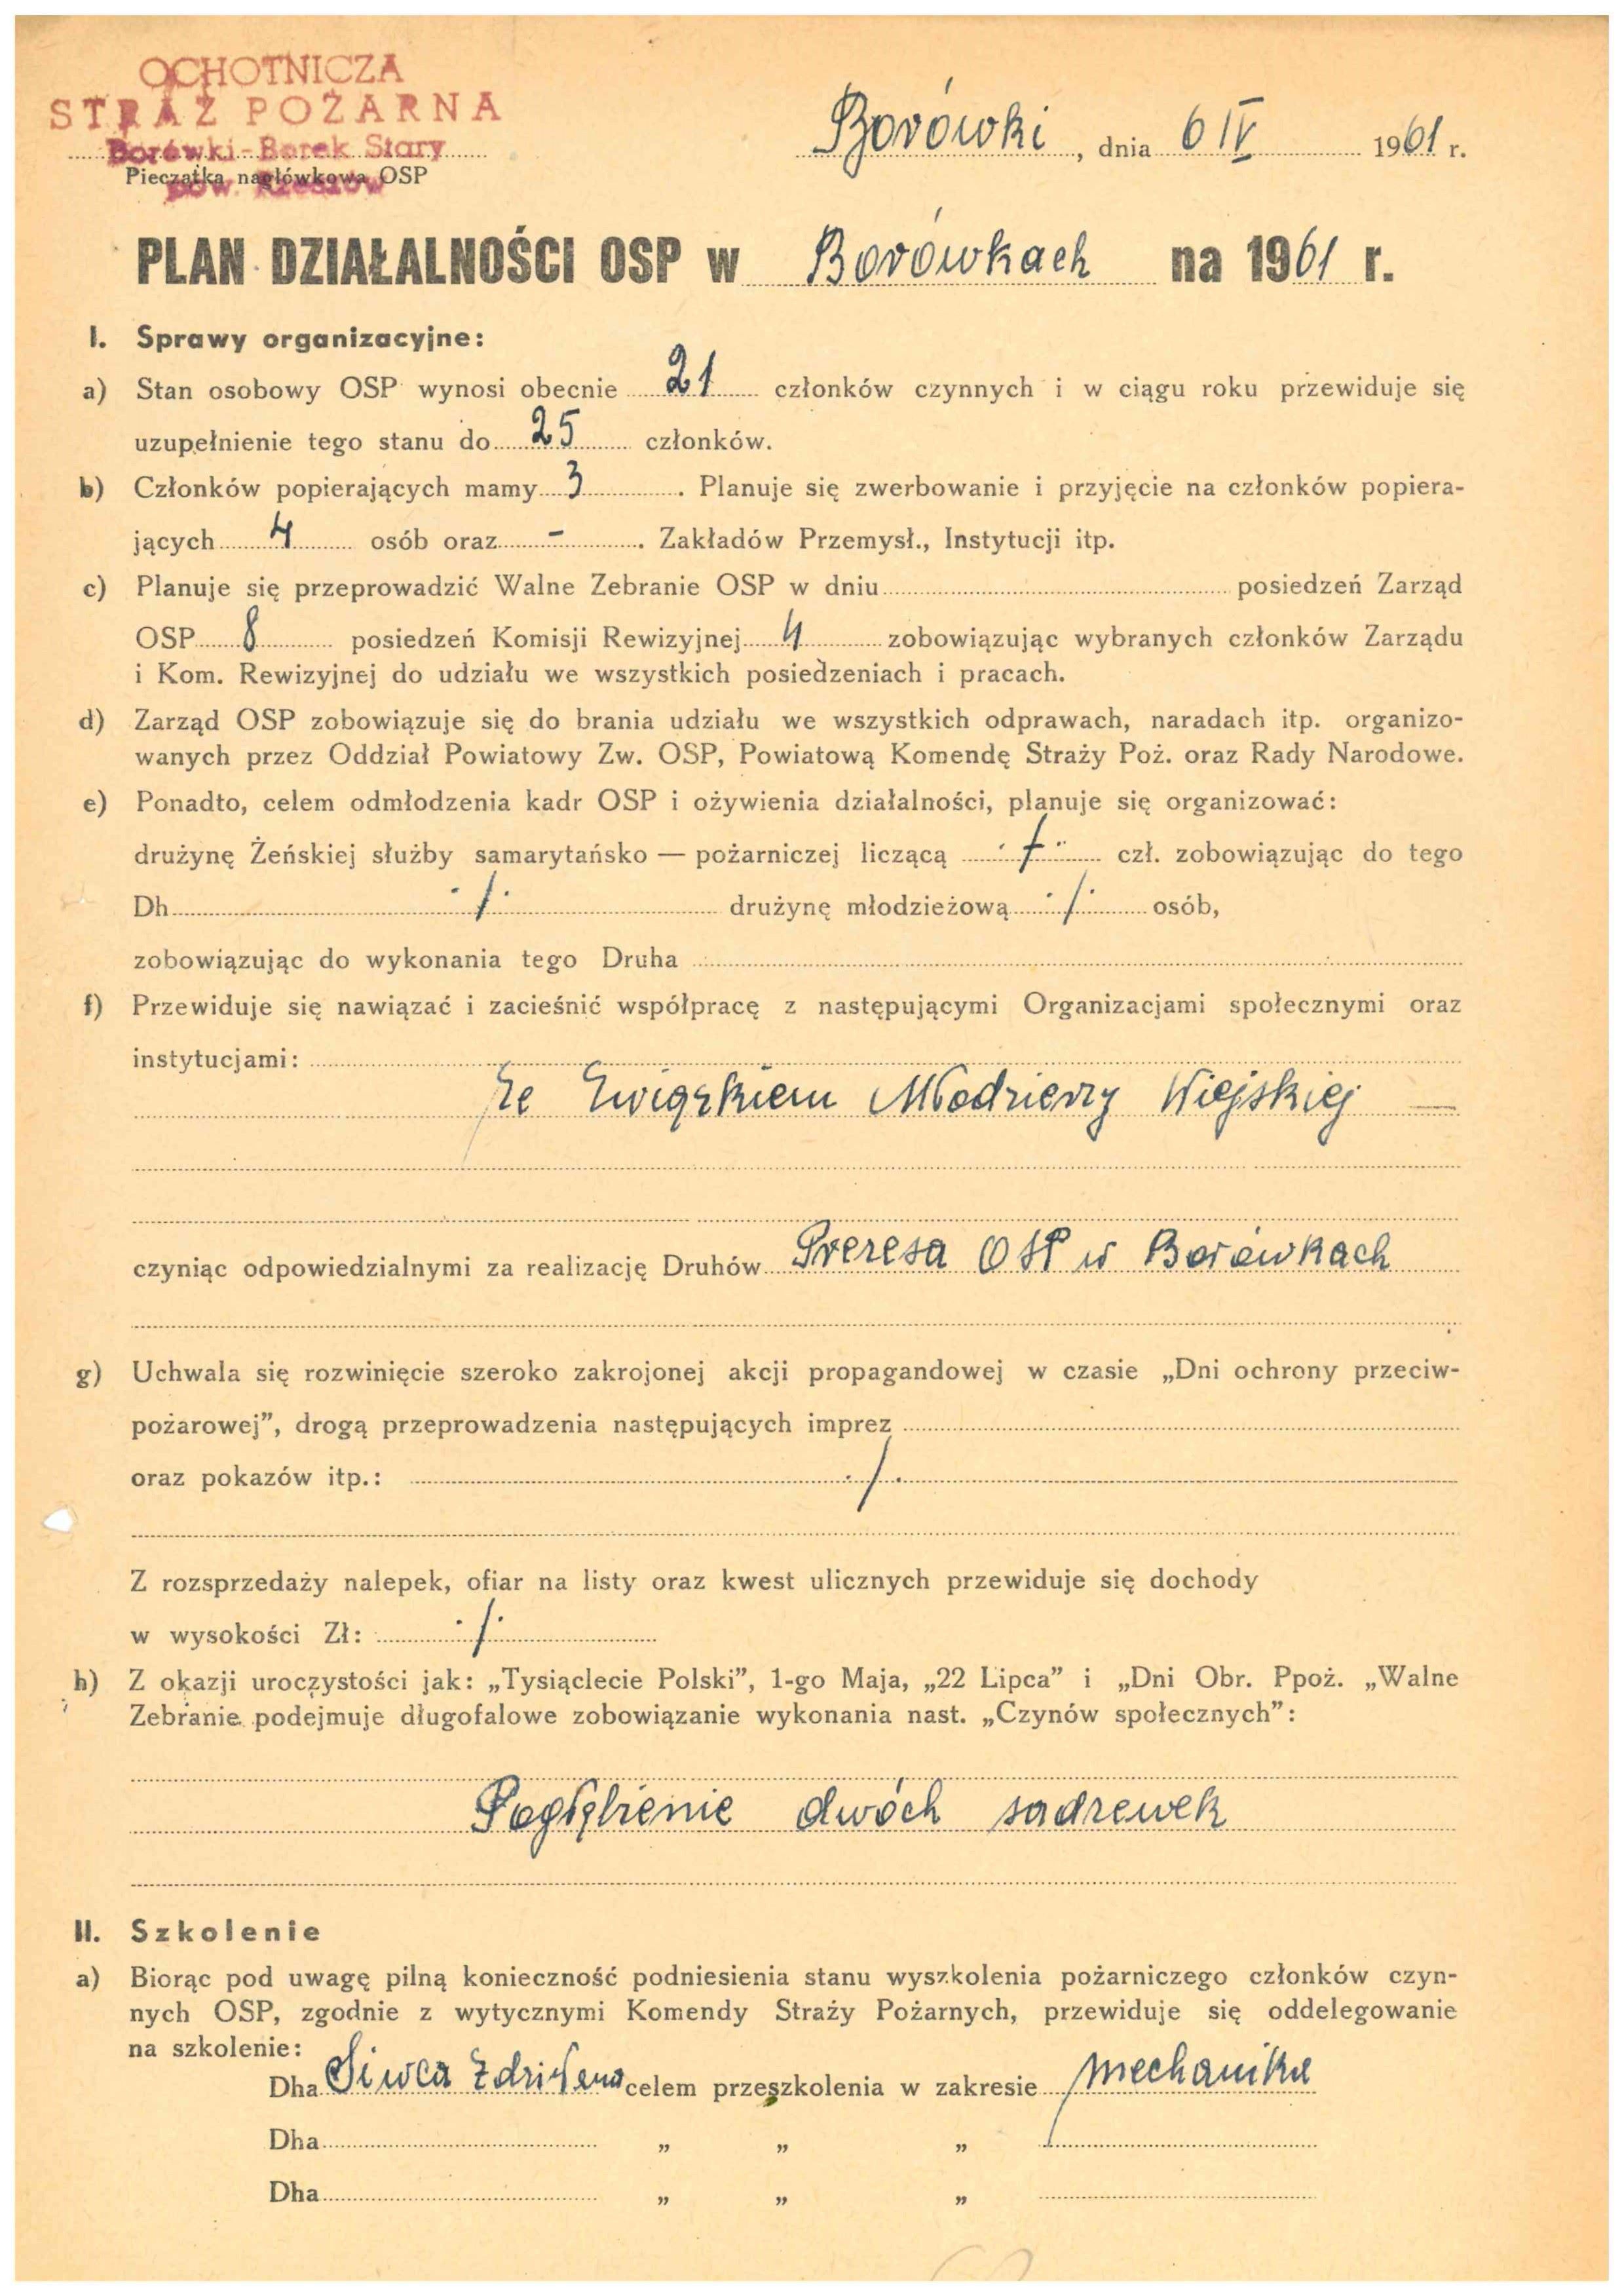 OCHOTNICZA
STRAŻ POŻARNA
Borówki-Borek Stary
Pieczątka nagłówkowa OSP
pow. Rzeszów
Borówki, dnia 6 IV 1961 r.
PLAN DZIAŁALNOŚCI OSP w Borowkach na 1961 r.
I. Sprawy organizacyjne:
a) Stan osobowy OSP wynosi obecnie 21 członków czynnych i w ciągu roku przewiduje się
uzupełnienie tego stanu do 25 członków.
b) Członków popierających mamy 3. Planuje się zwerbowanie i przyjęcie na członków popiera-
jących 4 osób oraz -. Zakładów Przemysł., Instytucji itp.
c) Planuje się przeprowadzić Walne Zebranie OSP w dniu posiedzeń Zarząd
OSP 8 posiedzeń Komisji Rewizyjnej 4 zobowiązując wybranych członków Zarządu
i Kom. Rewizyjnej do udziału we wszystkich posiedzeniach i pracach.
d) Zarząd OSP zobowiązuje się do brania udziału we wszystkich odprawach, naradach itp. organizo-
wanych przez Oddział Powiatowy Zw. OSP, Powiatową Komendę Straży Poż. oraz Rady Narodowe.
e) Ponadto, celem odmłodzenia kadr OSP i ożywienia działalności, planuje się organizować:
drużynę Żeńskiej służby samarytańsko — pożarniczej liczącą ·/· czł. zobowiązując do tego
Dh ·/· drużynę młodzieżową ·/· osób,
zobowiązując do wykonania tego Druha
f) Przewiduje się nawiązać i zacieśnić współpracę z następującymi Organizacjami społecznymi oraz
instytucjami:
Ze Związkiem Młodzierzy Wiejskiej —
czyniąc odpowiedzialnymi za realizację Druhów Prezesa OSP w Borowkach
g) Uchwala się rozwinięcie szeroko zakrojonej akcji propagandowej w czasie „Dni ochrony przeciw-
pożarowej”, drogą przeprowadzenia następujących imprez
oraz pokazów itp.: ·/·
Z rozsprzedaży nalepek, ofiar na listy oraz kwest ulicznych przewiduje się dochody
w wysokości Zł: ·/·
h) Z okazji uroczystości jak: „Tysiąclecie Polski”, 1-go Maja, „22 Lipca” i „Dni Obr. Ppoż. „Walne
Zebranie podejmuje długofalowe zobowiązanie wykonania nast. „Czynów społecznych”:
Pogłębienie dwóch sadzewek
II. Szkolenie
a) Biorąc pod uwagę pilną konieczność podniesienia stanu wyszkolenia pożarniczego członków czyn-
nych OSP, zgodnie z wytycznymi Komendy Straży Pożarnych, przewiduje się oddelegowanie
na szkolenie:
Dha Siwca celem przeszkolenia w zakresie mechanika
Dha „ „ „
Dha „ „ „